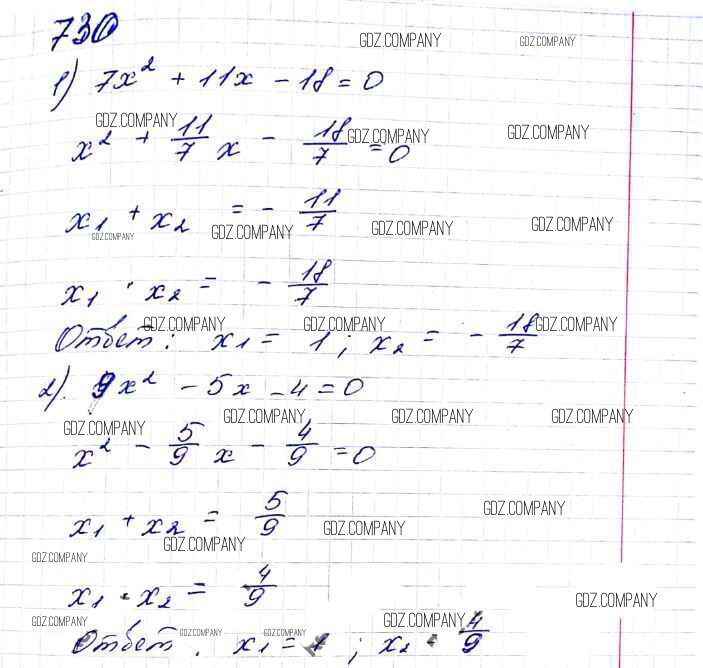 730
GDZ.COMPANY GDZ.COMPANY
1) 7x² + 11x - 18 = 0
GDZ.COMPANY GDZ.COMPANY GDZ.COMPANY
x² + 11/7 x - 18/7 = 0
x₁ + x₂ = - 11/7
GDZ.COMPANY GDZ.COMPANY GDZ.COMPANY GDZ.COMPANY
x₁ · x₂ = - 18/7
GDZ.COMPANY GDZ.COMPANY GDZ.COMPANY
Ответ: x₁ = 1; x₂ = - 18/7
2). 9x² - 5x - 4 = 0
GDZ.COMPANY GDZ.COMPANY GDZ.COMPANY GDZ.COMPANY
x² - 5/9 x - 4/9 = 0
GDZ.COMPANY
x₁ + x₂ = 5/9
GDZ.COMPANY GDZ.COMPANY
GDZ.COMPANY
x₁ · x₂ = 4/9
GDZ.COMPANY
GDZ.COMPANY GDZ.COMPANY GDZ.COMPANY GDZ.COMPANY
Ответ. x₁ = 1; x₂ = 4/9